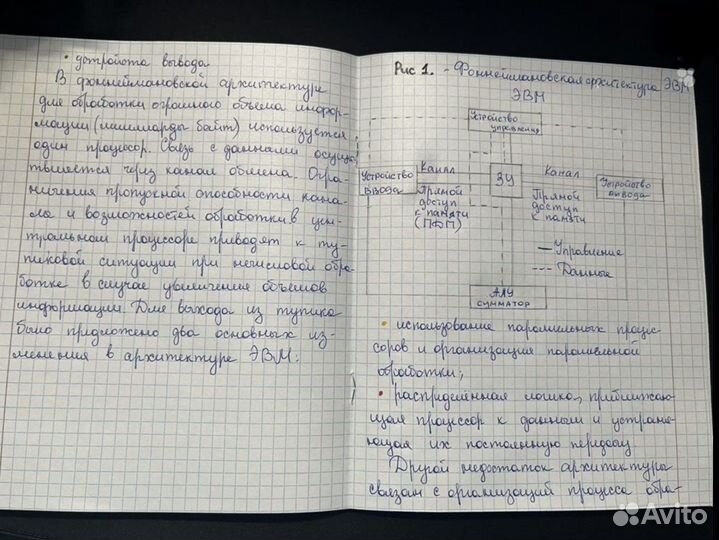 • устройства вывода
В фоннеймановской архитектуре
для обработки огромного объема инфор-
мации (миллиарды байт) используется
один процессор. Связь с данными осущес-
твляется через канал обмена. Огра-
ничения пропускной способности кана-
ла и возможностей обработки в цен-
тральном процессоре приводят к ту-
пиковой ситуации при нечисловой обра-
ботке в случае увеличения объемов
информации. Для выхода из тупика
было предложено два основных из-
менения в архитектуре ЭВМ:
Рис 1. - Фоннеймановская архитектура ЭВМ
ЭВМ
Устройство
управления
Устройство
ввода
Канал
Прямой
доступ
к памяти
(ПДП)
ЗУ
Канал
Прямой
доступ
к памяти
Устройство
вывода
— Управление
--- Данные
АЛУ
сумматор
• использование параллельных процес-
соров и организация параллельной
обработки;
• распределённая логика, приближаю-
щая процессор к данным и устраня-
ющая их постоянную передачу.
Другой недостаток архитектуры
связан с организацией процесса обра-
Avito